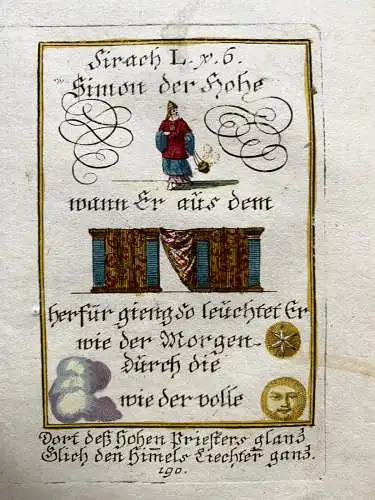 Sirach L. v. 6.
Simon der Hohe
wann Er aüs dem
herfür gieng so leüchtet Er
wie der Morgen-
Dürch die
wie der volle
Dort deß Hohen Priesters glanz
Glich den Him̄els Liechter̄ ganz.
190.